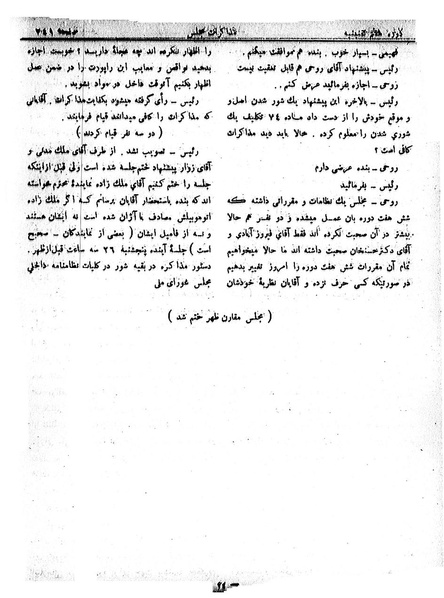 مذاکرات مجلس
صفحه ۲۴۱
فهیمی ـ بسیار خوب . بنده هم موافقت میکنم .
رئیس ـ پیشنهاد آقای روحی هم قابل تعقیب نیست
روحی ـ اجازه بفرمائید عرض کنم ..
رئیس ـ بالاخره این پیشنهاد یك شور شدن اصل و
و موقع خودش را از دست داد مـاده ۷۴ تکلیف یك
شوری شدن را معلوم کرده . حالا باید دید مذاکرات
کافی است ؟
روحی ـ بنده عرضی دارم
رئیس ـ بفرمائید
روحی ـ مجلس یك نظامات و مقرراتی داشته که
شش هفت دوره بان عمل میشده و دو نفر هم حالا
بیشتر در آن صحبت نکرده اند فقط آقای فیروز آبادی و
آقای دکتر حسنخان صحبت داشته اند ما حالا میخواهیم
تمام آن مقررات شش هفت دوره را امروز تغییر بدهیم
در صورتیکه کسی حرف نزده و آقایان نظریهٔ خودشان
را اظهار نکرده اند چه عجلهٔ دارید ؟ خوبست اجازه
بدهید نواقص و معایب این راپورت را در ضمن عمل
اظهار بکنیم آنوقت داخل در مواد بشوید .
رئیس ـ رأی گرفته میشود بکفایت مذاکرات . آقایانی
که مذاکرات را کافی میدانند قیام فرمایند
( دو سه نفر قیام کردند )
رئیس ـ تصویب نشد . از طرف آقای ملك مدنی و
آقای زوار پیشنهاد ختم جلسه شده است ولی قبل از اینکه
جلسه را ختم کنیم آقای ملك زاده نمایندهٔ محترم خواسته
اند که بنده باستحضار آقایان برسانم که اگر ملك زاده
اتوموبیلش مصادف با آژان شده است نه ایشان هستند
و نـه از فامیل ایشان ( بعضی از نمایندگان ـ صحیح
است ) جلسهٔ آینده پنجشنبهٔ ۲۶ سه ساعت قبل از ظهر .
دستور مذاکره در بقیه شور در کلیات نظامنامه داخلی
مجلس شورای ملی
( مجلس مقارن ظهر ختم شد )